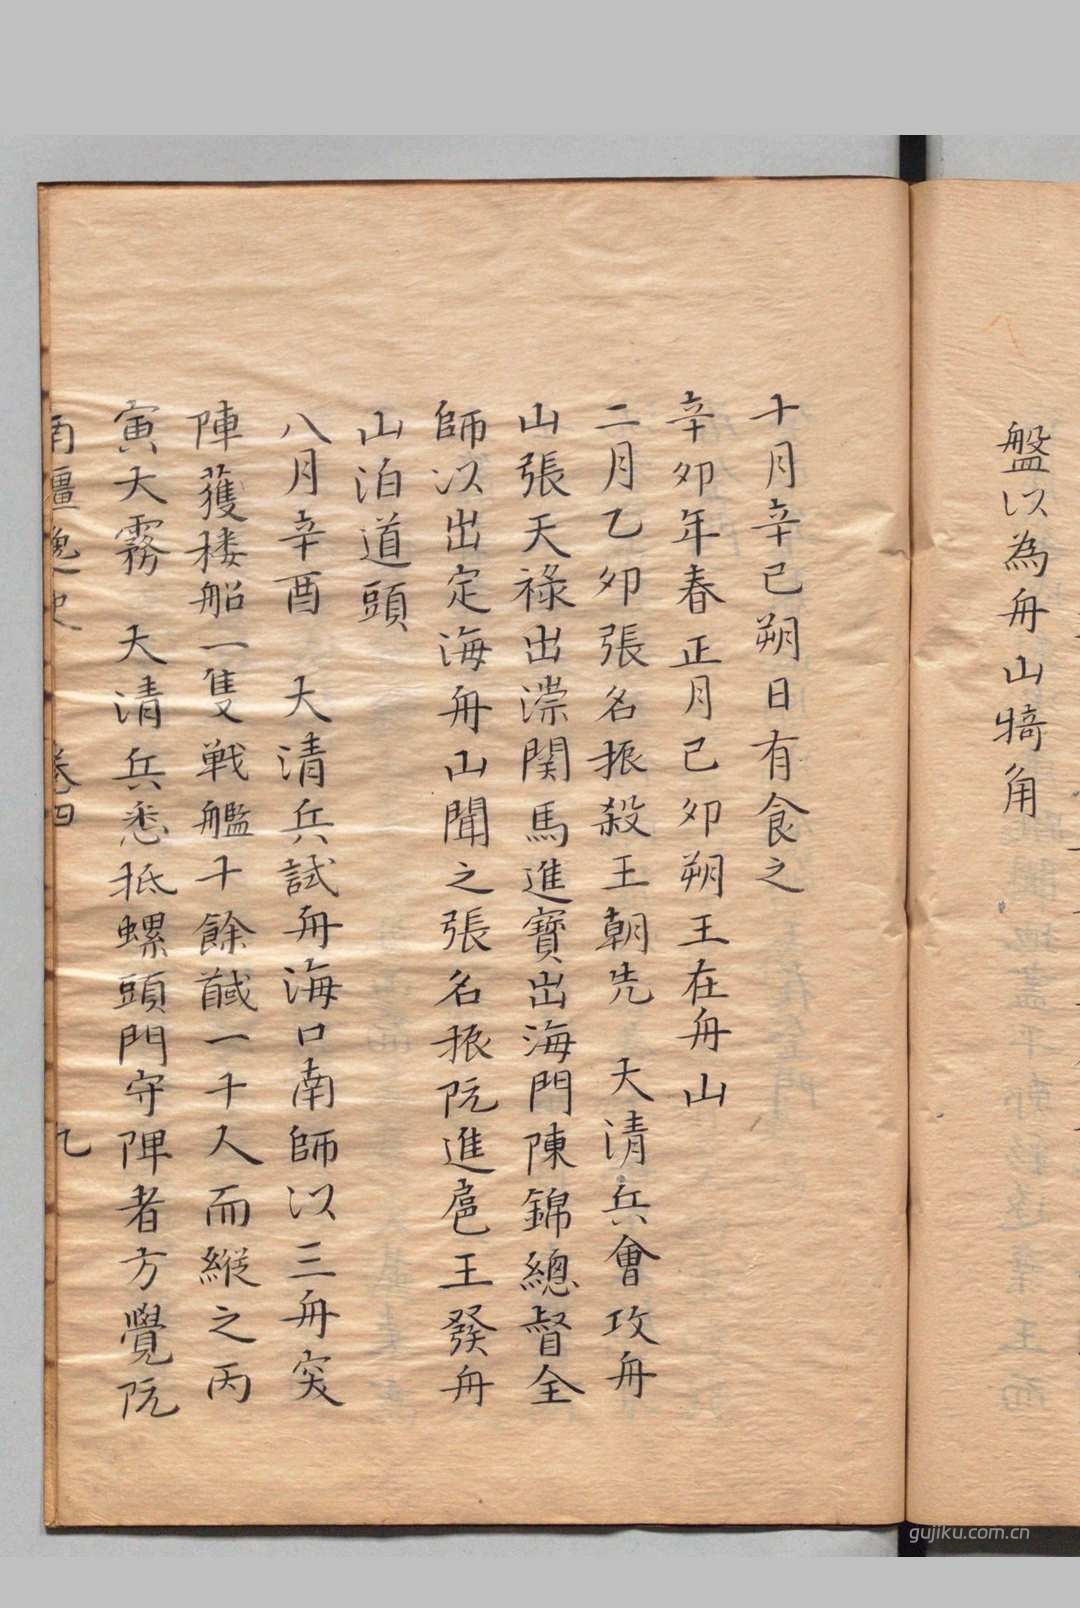 盤以為舟山犄角
十月辛巳朔日有食之
辛卯年春正月己卯朔王在舟山
二月乙卯張名振殺王朝先　大清兵會攻舟
山張天祿出漴関馬進寶出海門陳錦總督全
師以出定海舟山聞之張名振阮進扈王發舟
山泊道頭
八月辛酉　大清兵試舟海口南師以三舟突
陣獲楼船一隻戦艦十餘馘一十人而縱之丙
寅大霧　大清兵悉抵螺頭門守陴者方覺阮
南疆逸史　卷四　九
gujiku.com.cn